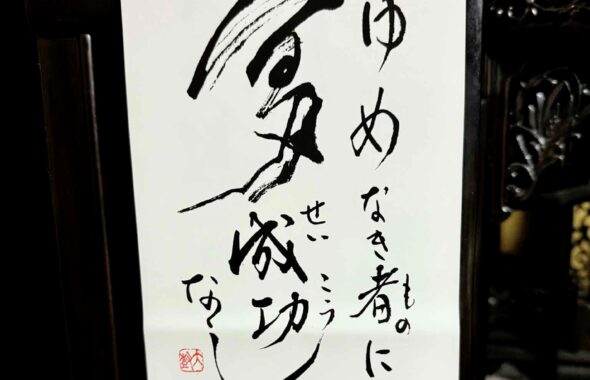 ゆめなき者に
もの
夢
成功
せいこう
なし